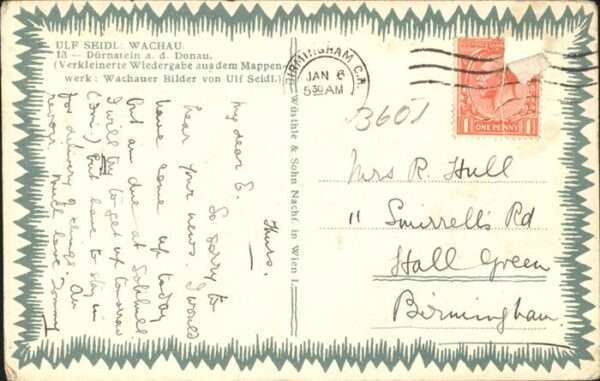 ULF SEIDL: WACHAU.
13 — Dürnstein a. d. Donau.
(Verkleinerte Wiedergabe aus dem Mappen-
werk: Wachauer Bilder von Ulf Seidl.)
BIRMINGHAM
JAN 6
5 30 AM
ONE PENNY
1 1
3601
Wüsthle & Sohn Nachf. in Wien I.
Thurs.
My dear E.
So sorry to
hear your news. I would
have come up today
but am due at Solihull
I will try to get up tomorrow
But have to stay in
for delivery of things. Au
revoir. Much love
Mrs R. Hull
11 Smirrells Rd
Hall Green
Birmingham.